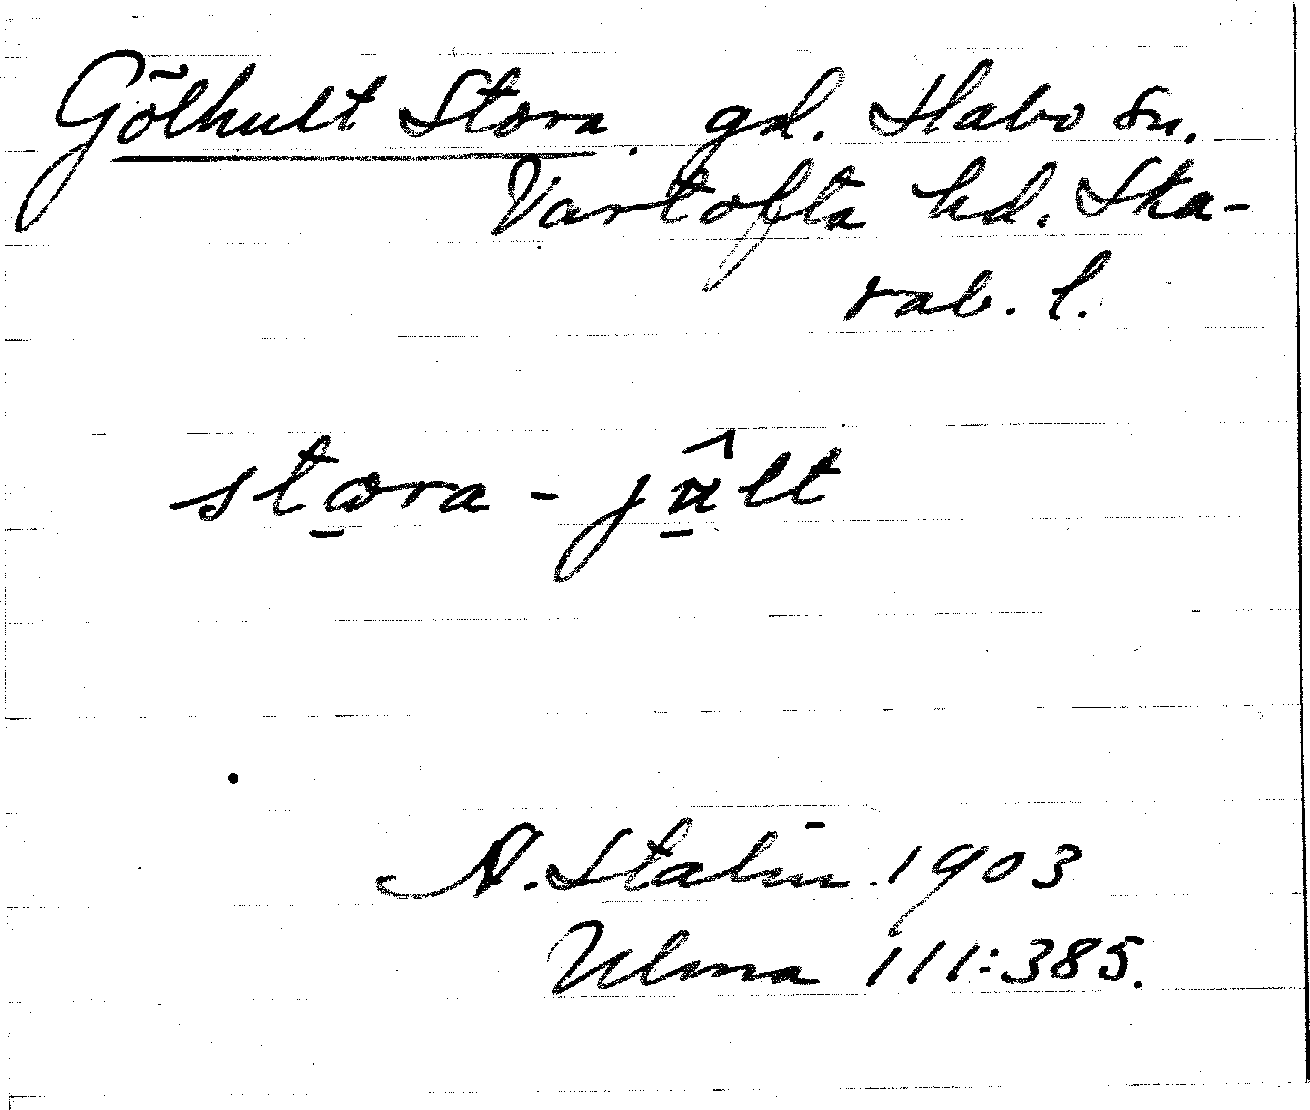 Gölhult Stora. gd. Habo sn.
Vartofta hd. Ska-
rab. l.
stɷra - jûlt
A. Stalin 1903
Ulma 111:385.